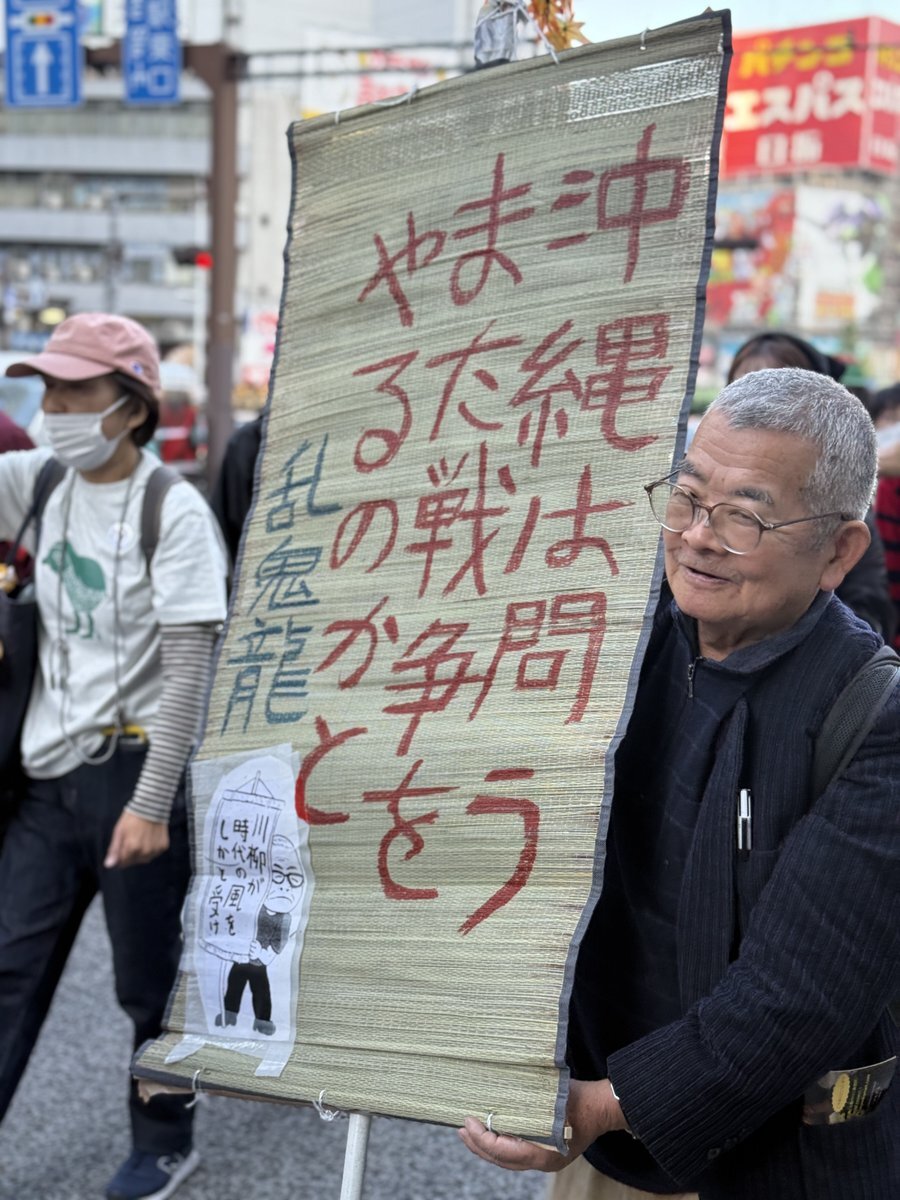 沖縄は問う
また戦争を
やるのかと
乱鬼龍
川柳が
時代の風を
しかと受け
パチンコ
エスパス